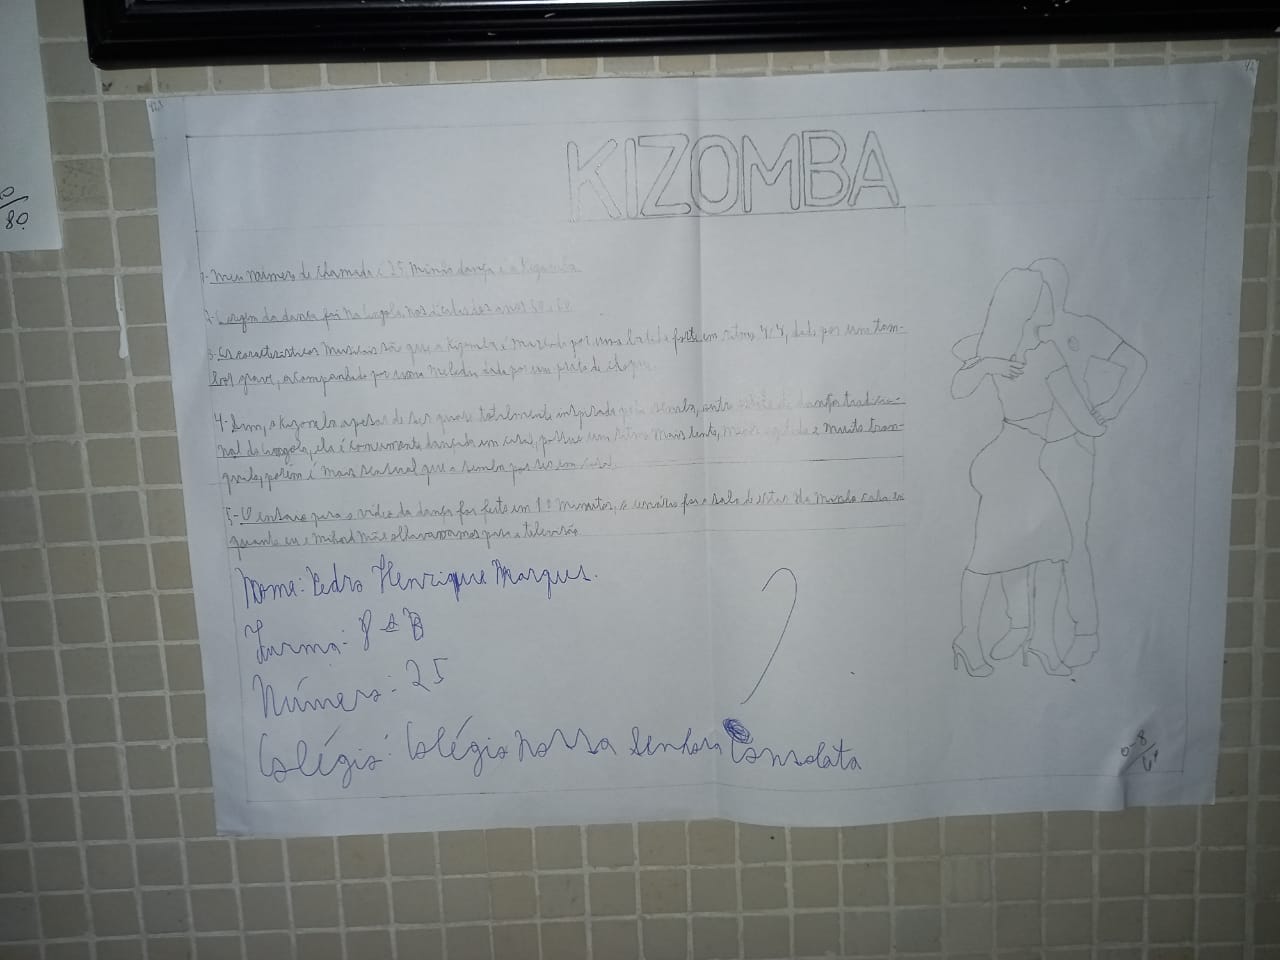 KIZOMBA
1- Meu número de chamada é 25 minha dança é a Kizomba
2- A origem da dança foi na Angola, nas décadas dos anos
3- As características musicais são que a Kizomba é marcada por uma batida forte em ritmo 4/4, dado por um tam-
bor grave, acompanhado por uma melodia dada por um prato de choque.
4- Sim, a Kizomba apesar de ser quase totalmente inspirada pela semba, outro de dança tradicio-
nal de Angola, ela é comumente dançada em casal, possue um ritmo mais lento, menos agitado e muito tran-
quilo, porém é mais sensual que a semba por ser em casal.
5- O ensaio para o vídeo da dança foi feito em 10 minutos, o cenário foi a sala de estar da minha casa en
quanto eu e minha mãe olhavamos para a televisão.
Nome: Pedro Henrique Marques.
Turma: 8º B
Número: 25
Colégio: Colégio Nossa Senhora Consolata
80